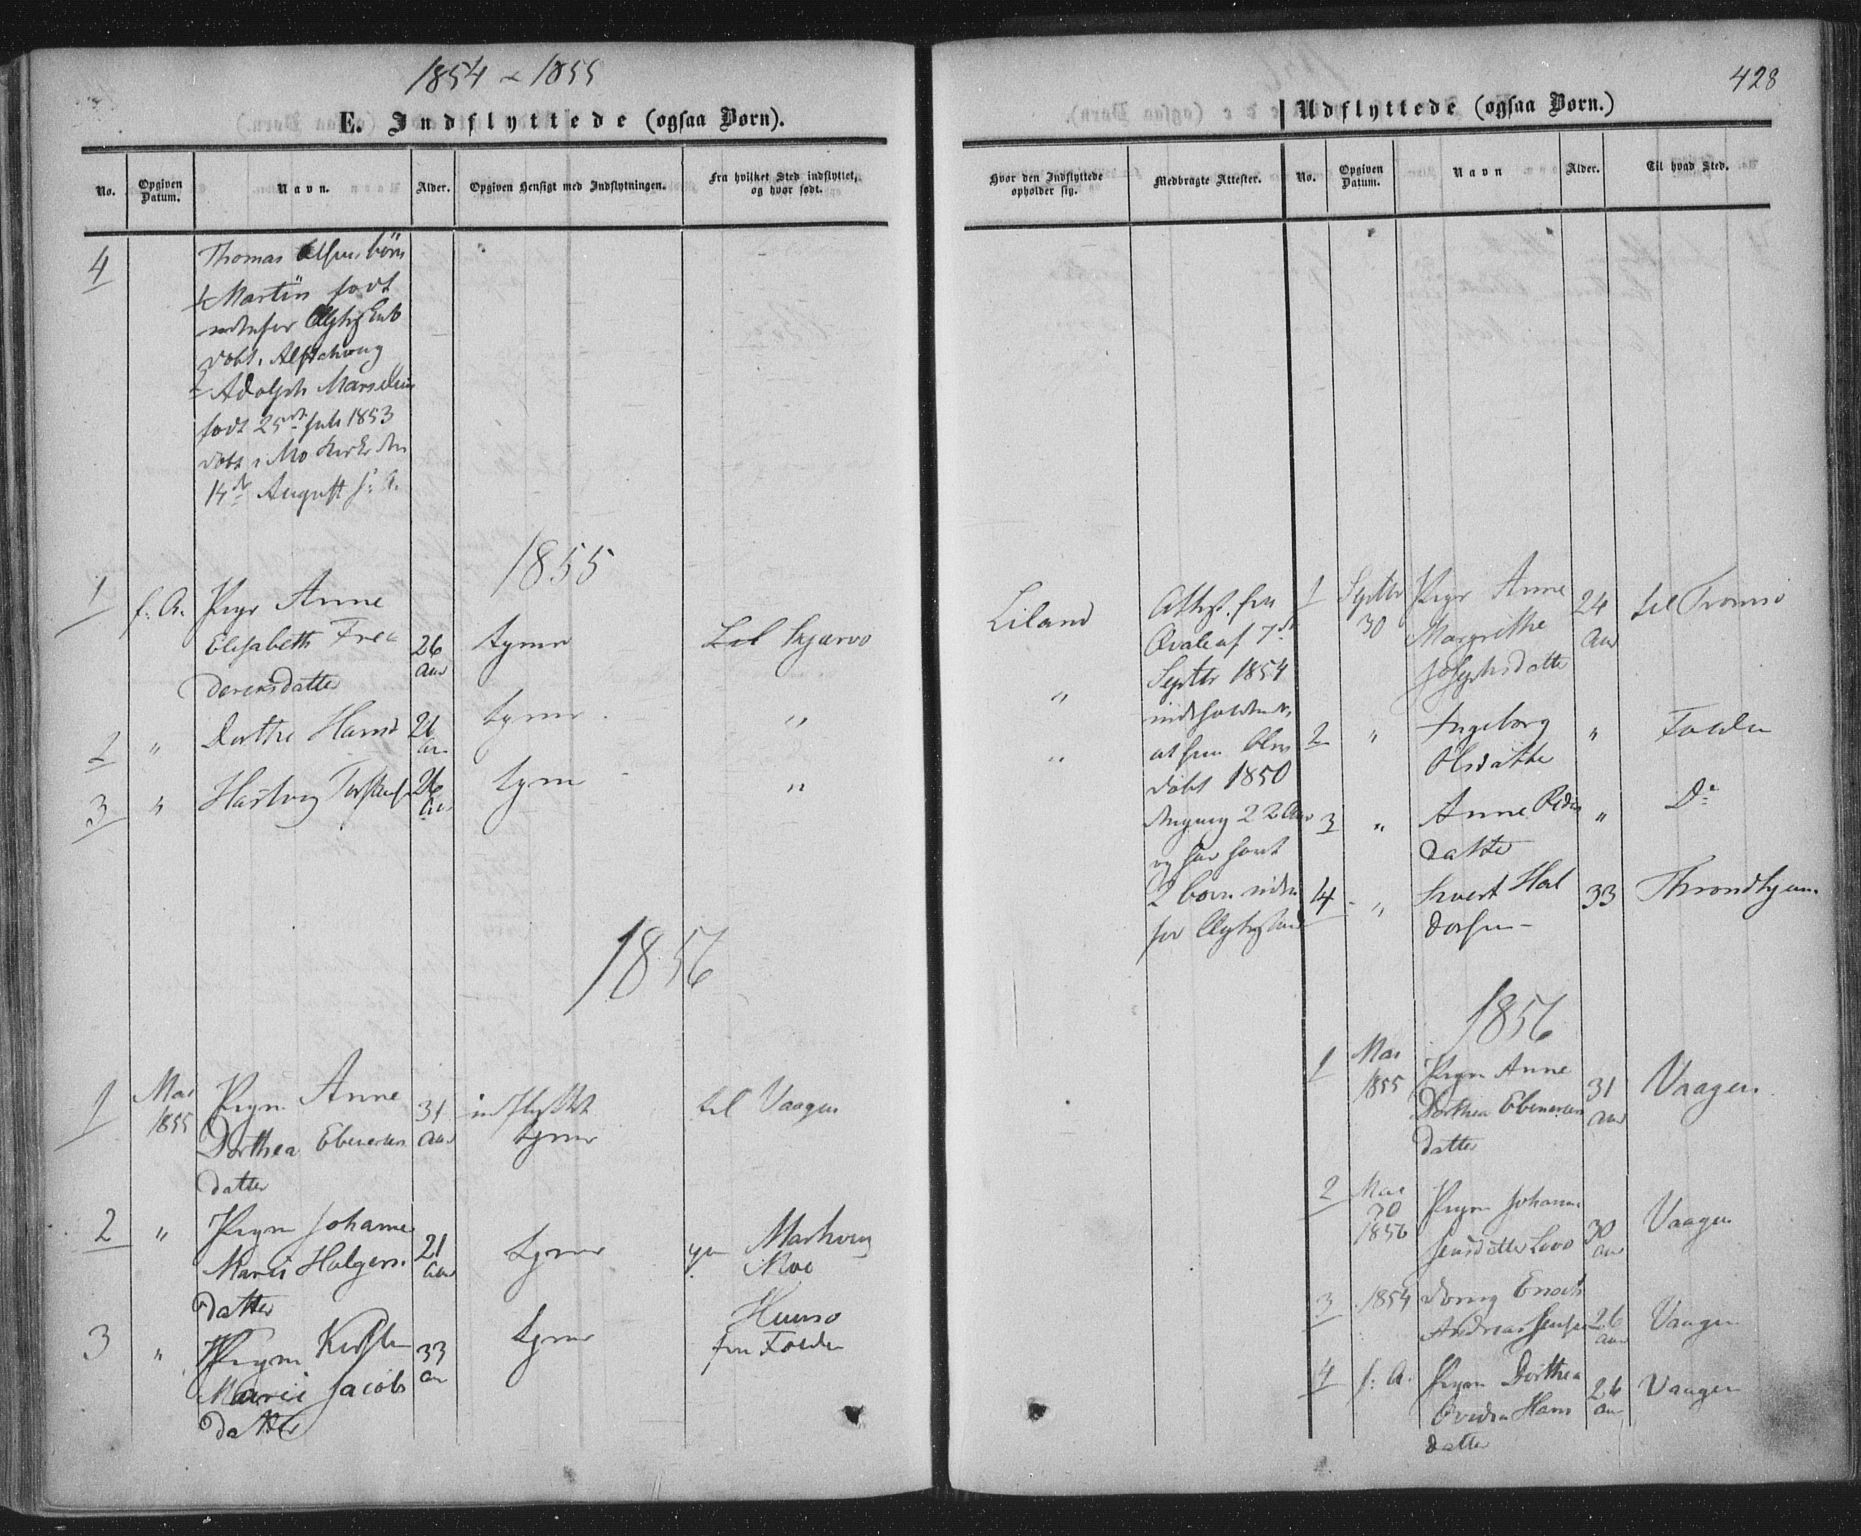 1854 - 1855
E. Indflyttede (ogsaa Børn).
No.
Opgiven Datum.
Navn.
Alder.
Opgiven Hensigt med Indflytningen.
Fra hvilket Sted indflyttet, og hvor født.
4
Thomas Olsens börn
1 Martin født
udenfor
döbt.
2 Adolph
født 25de Juli 1853
döbt i Mo Kirke den
14de August s: A.
1855
1
f. A.
Pige Anne
Elisabeth Fre
deriksdatter
26
Aar
tjene
til Skjærvø
2
"
Dorthe Hansd
26
Aar
tjene
"
3
"
Hartvig
26
Aar
tjene
"
1856
1
Mai
1855
Pigen Anne
Dorthea Ebenersen
datter
31
Aar
indflyttet
tjene
til Vaagen
2
"
Pigen Johanne
Marie Holgers
datter
21
Aar
tjene
Moe
3
"
Pigen Kirsten
Marie Jacobs
datter
33
tjene
fra Folden
428
Udflyttede (ogsaa Børn.)
Hvor den Indflyttede opholder sig.
Medbragte Attester.
No.
Opgiven Datum.
Navn
Alder.
Til hvad Sted.
Liland
"
"
Attest fra
af 7de
Septbr 1854
at hun blev
döbt 1850
22 Aar
og har havt
2 børn uden
for
1
Septbr
30
Pige Anne
Margrethe
Josephsdatter
24
Aar
til Tromsø
2
"
Ingeborg
Olsdatter
"
Folden
3
"
Anne Peders
datter
"
Do
4
"
Sivert Hal
dorsen
33
Throndhjem
1856
1
Mai
1855
Pigen Anne
Dorthea Ebenersen
datter
31
Aar
Vaagen
2
Mai
30
1856
Pigen Johanne
Jensdatter
30
Aar
Vaagen
3
1854
Enoch
Andreas Jensen
26
Aar
Vaagen
4
f: A.
Pigen Dorthea
Hans
datter
26
Aar
Vaagen